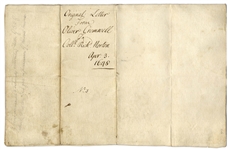 Original Letter
from
Oliver Cromwell
to
Coll. Rich. Norton
Apr. 3.
1648